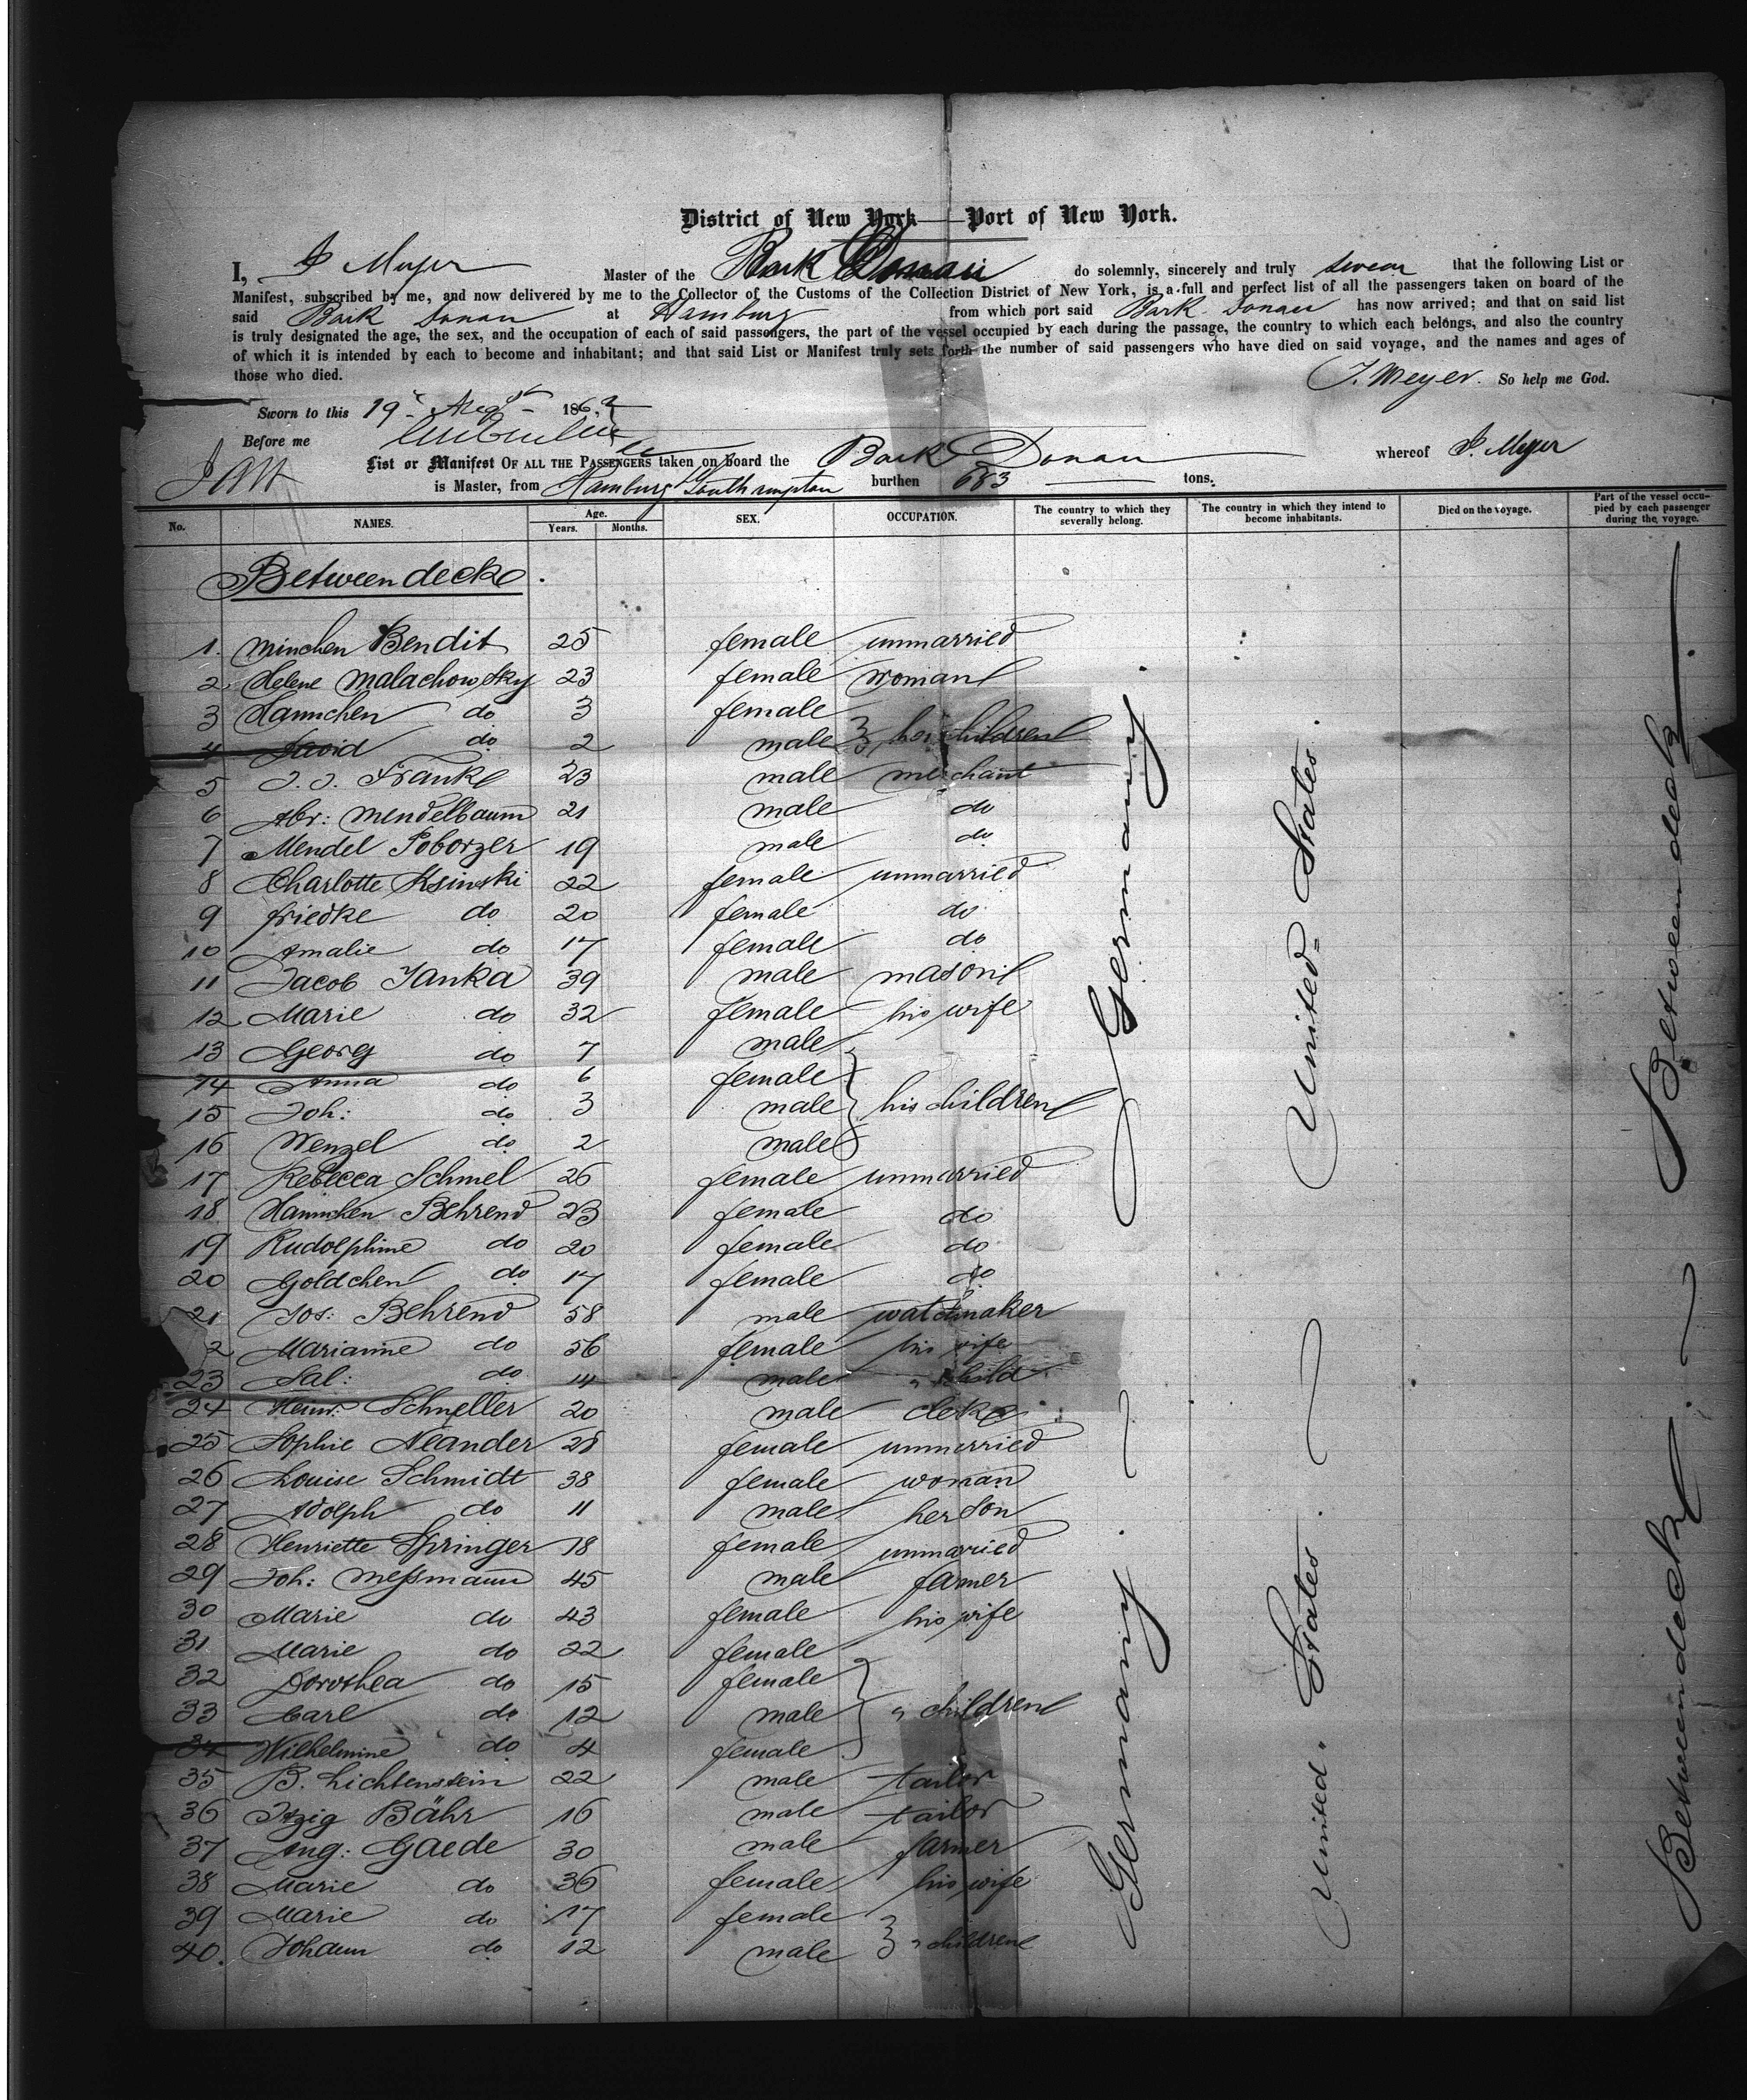 District of New York—Port of New York.
I, J Meyer Master of the Bark Donau do solemnly, sincerely and truly swear that the following List or
Manifest, subscribed by me, and now delivered by me to the Collector of the Customs of the Collection District of New York, is a full and perfect list of all the passengers taken on board of the
said Bark Donau at Hamburg from which port said Bark Donau has now arrived; and that on said list
is truly designated the age, the sex, and the occupation of each of said passengers, the part of the vessel occupied by each during the passage, the country to which each belongs, and also the country
of which it is intended by each to become and inhabitant; and that said List or Manifest truly sets forth the number of said passengers who have died on said voyage, and the names and ages of
those who died.
J. Meyer. So help me God.
Sworn to this 19 Augst 1862
Before me
List or Manifest OF ALL THE PASSENGERS taken on board the Bark Donau whereof J. Meyer
is Master, from Hamburg Southampton burthen 683 tons.
No. NAMES. Age. Years. Months. SEX. OCCUPATION. The country to which they severally belong. The country in which they intend to become inhabitants. Died on the voyage. Part of the vessel occupied by each passenger during the voyage.
Between decks.
1. Minchen Bendit 25 female unmarried
2 Helene Malachowsky 23 female woman
3 Hannchen do 3 female
4 David do 2 male } her children
5 J. J. Franke 23 male merchant
6 Abr: Mendelbaum 21 male do
7 Mendel Soborzer 19 male do
8 Charlotte Ksinski 22 female unmarried
9 friedke do 20 female do
10 Amalie do 17 female do
11 Jacob Janka 39 male mason
12 Marie do 32 female his wife
13 Georg do 7 male
14 Anna do 6 female
15 Joh: do 3 male } his children
16 Wenzel do 2 male
17 Rebecca Schmel 26 female unmarried
18 Hannchen Behrend 23 female do
19 Rudolphine do 20 female do
20 Goldchen do 17 female do
21 Jos: Behrend 58 male watchmaker
2 Marianne do 56 female his wife
23 Sal: do 14 male " child
24 Heinr: Schneller 20 male clerk
25 Sophie Neander 28 female unmarried
26 Louise Schmidt 38 female woman
27 Adolph do 11 male her son
28 Henriette Springer 18 female unmarried
29 Joh: Meßmann 45 male farmer
30 Marie do 43 female his wife
31 Marie do 22 female
32 Dorothea do 15 female
33 Carl do 12 male } " children
34 Wilhelmine do 4 female
35 B. Lichtenstein 22 male tailor
36 Itzig Bähr 16 male tailor
37 Aug: Gaede 30 male farmer
38 Marie do 36 female his wife
39 Marie do 17 female
40. Johann do 12 male } " children
Germany.
Germany.
United States.
United States.
Between deck
Between deck